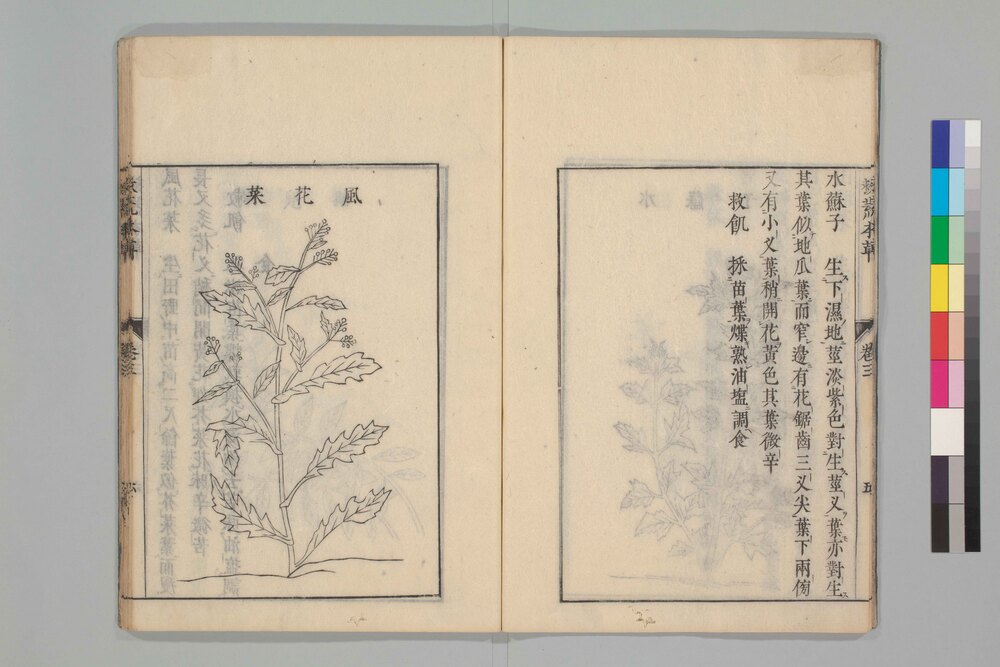 水蘇子 生下濕地莖淡紫色對生莖叉葉亦對生
其葉似地瓜葉而窄邊有花鋸齒三叉尖葉下兩傍
又有小叉葉稍開花黃色其葉微辛
救飢 採苗葉煠熟油塩調食
卷三
風花菜